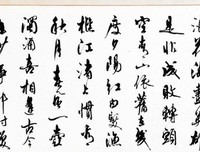 是非成敗轉頭
空青山依舊在幾
度夕陽紅白髮漁
樵江渚上慣看
秋月春風一壺
濁酒喜相逢古今